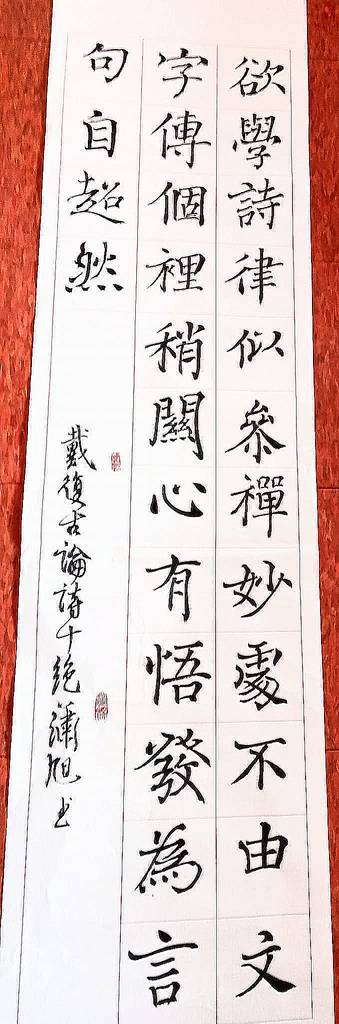 欲學詩律似參禪妙處不由文
字傳個裡稍關心有悟發為言
句自超然
戴復古論詩十絕 旭書